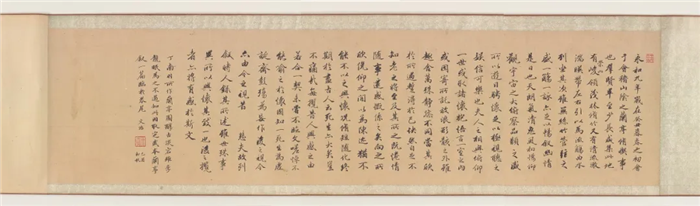 永和九年歲在癸丑暮春之初會
于會稽山陰之蘭亭脩禊事
也羣賢畢至少長咸集此地
有峻領茂林脩竹又有清流激
湍暎帶左右引以為流觴曲水
列坐其次雖無絲竹管弦之
盛一觴一詠亦足以暢敘幽情
是日也天朗氣清惠風和暢仰
觀宇宙之大俯察品類之盛
所以遊目騁懷足以極視聽之
娛信可樂也夫人之相與俯仰
一世或取諸懷抱悟言一室之內
或因寄所託放浪形骸之外雖
趣舍萬殊靜躁不同當其欣
於所遇蹔得於己快然自足不
知老之將至及其所之既惓情
隨事遷感慨係之矣向之所
欣俛仰之間以為陳迹猶不
能不以之興懷況脩短隨化終
期於盡古人云死生亦大矣豈
不痛哉每攬昔人興感之由
若合一契未嘗不臨文嗟悼不
能喻之於懷固知一死生為虛
誕齊彭殤為妄作後之視今
亦由今之視昔悲夫故列
敘時人錄其所述雖世殊事
異所以興懷其致一也後之攬
者亦將有感於斯文